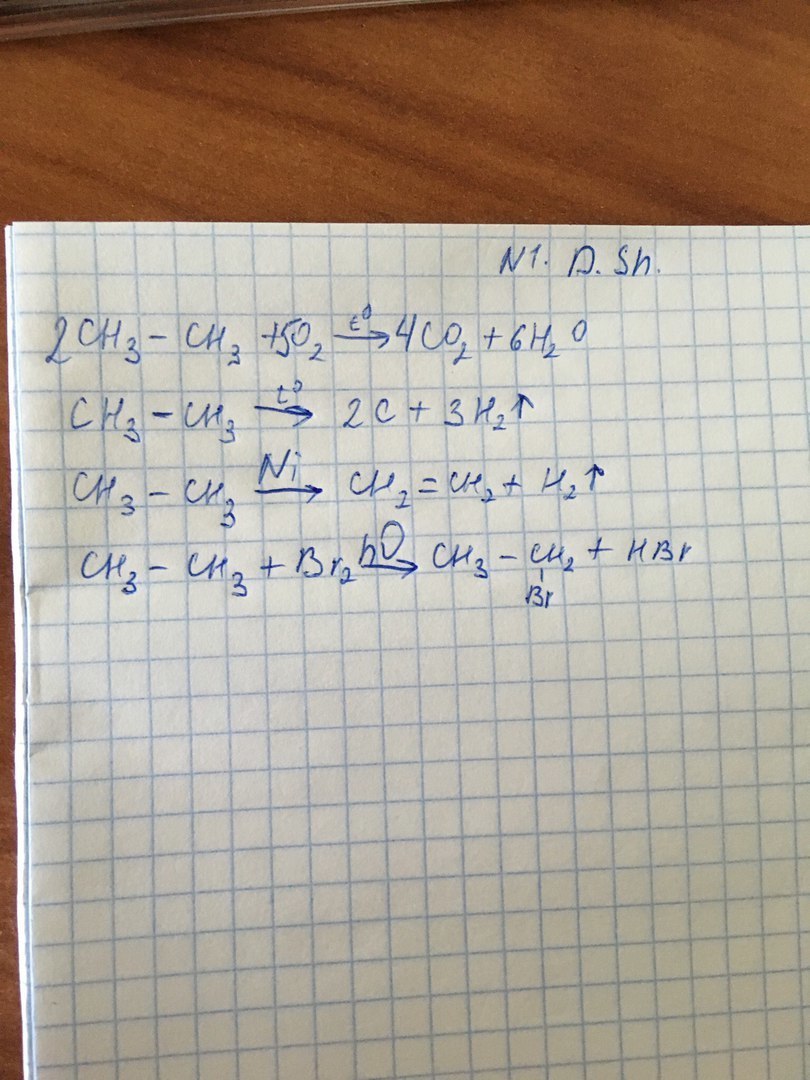 N1. D. Sh.
2CH₃ – CH₃ + 5O₂ →(t⁰) 4CO₂ + 6H₂O
CH₃ – CH₃ →(t⁰) 2C + 3H₂↑
CH₃ – CH₃ →(Ni) CH₂ = CH₂ + H₂↑
CH₃ – CH₃ + Br₂ →(hυ) CH₃ – CH₂ + HBr
Br